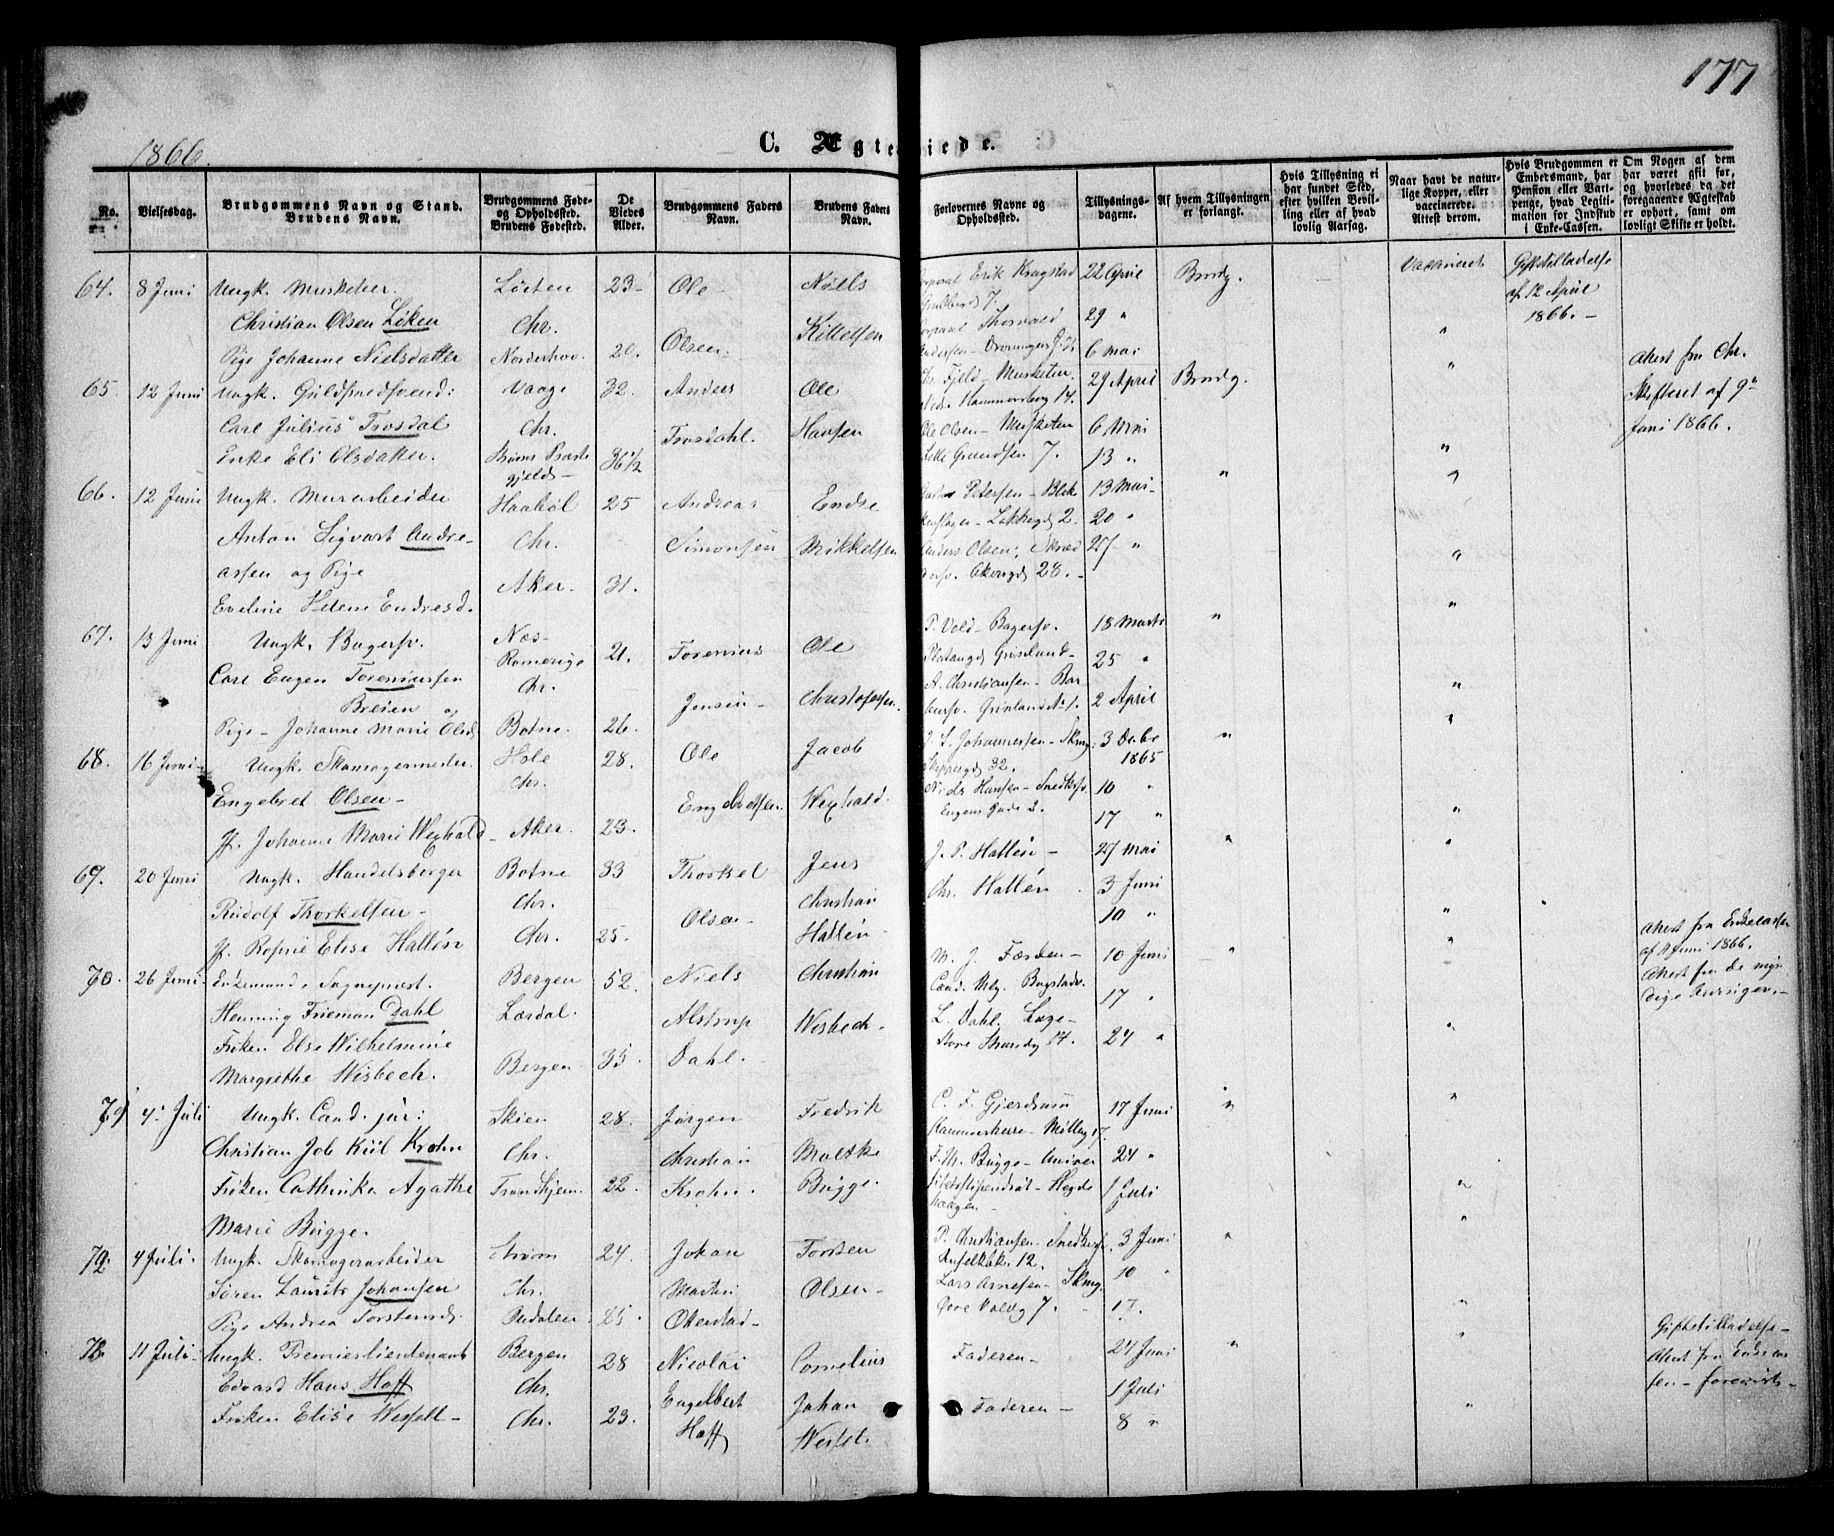 177
1866.
C. Ægteviede.
No.
Vielsesdag.
Brudgommens Navn og Stand.
Brudens Navn.
Brudgommens Føde-
og Opholdssted.
Brudens Fødested.
De
Viedes
Alder.
Brudgommens Faders
Navn.
Brudens Faders
Navn.
Forlovernes Navne og
Opholdssted.
Tillysnings-
dagene.
Af hvem Tillysningen
er forlangt.
Hvis Tillysning ei
har fundet Sted,
efter hvilken Bevil-
ling eller af hvad
lovlig Aarsag.
Naar havt de natur-
lige Kopper, eller
vaccinerede.
Attest derom.
Hvis Brudgommen er
Embedsmand, har
Pension eller Vart-
penge, hvad Legiti-
mation for Indskud
i Enke-Cassen.
Om Nogen af dem
har været gift før,
og hvorledes da det
foregaaende Ægteskab
er ophørt, samt om
lovligt Skifte er holdt.
64. 8 Juni Ungk. Musketeer. Løiten 23 Ole Niels
Christian Olsen Løken Chr. Olsen Kittelsen
Pige Johanne Nielsdatter Norderhov 20.
Corporal Erik Kragstad 22 April Brudg. Vaccineret Giftetilladelse
af 12 April
1866.
Corporal Thorvald 29 "
Andersen 6 Mai "
65. 12 Juni Ungk. Guldsmedsvend: Vaage 32. Anders Ole
Carl Julius Trosdal Chr. Trosdahl. Hansen
Enke Eli Olsdatter. Strøms Præste
gjeld 36 1/2
Chr. Fjeld Musketeer. 29 April Brudg. "
Hammersborg 14.
Ole Olsen Musketeer 6 Mai
7. 13 " "
Attest fra Chr.
Skifteret af 9de
Juni 1866.
66. 12 Juni Ungk. Murarbeider Haabøl 25 Andreas Endre
Anton Sigvart Andre- Chr. Simonsen Mikkelsen
assen og Pige
Eveline Helene Endresd. Aker. 31.
Petersen Blik 13 Mai " "
kenslager Lakkegd 2. 20 "
Anders Olsen, Skræd 27 " "
dersv. Akersgd 28. "
67. 13 Juni Ungk. Bagersv. Næs Romerige 21. Torenius Ole
Carl Eugen Toreniussen Chr. Jensen Christofersen.
Breien og
Pige Johanne Marie Olsd Botne 26.
P. Vold Bagersv. 18 Marts "
Platougd Grønland 25 "
A. Christiansen Bar 2 April "
bersv. Grønland No 1. "
68. 16 Juni Ungk. Skomagermester Hole 28. Ole Jacob
Engebret Olsen Chr. Engebretsen. Wexhald.
Jf. Johanne Marie Wexhald Aker. 23.
Johannessen Skmg. 3 Decbr "
Skippergd 32. 1865
Niels Hansen Snedkersv. 10 "
Eugens Gade 2. 17 " "
69. 20 Juni Ungk. Handelsborger Botne 33 Thorkel Jens
Rudolf Thorkelsen Chr. Olsen Christian
Jf. Rosine Elise Hallén Chr. 25. Hallén
J. P. Hallén 27 Mai " "
Chr. Hallén 3 Juni
10 " "
70. 26 Juni Enkemand, Sognepræst. Bergen 52. Niels Christian
Henning Frieman Dahl Lærdal. Alstrup Wesbech
Frøken Else Wilhelmine Dahl.
Margrethe Wisbech. Bergen 35
M. J. Færden 10 Juni " "
Cand. Bogstadv. 17 "
L. Dahl. Læge 24 " "
Store Strandg 17.
Attest fra Enkekassen
af Juni 1866.
Attest fra de myn
dige Arvinger.
71 4. Juli Ungk. Cand. jur: Skien 28. Jørgen Fredrik
Christian Job Kiil Krohn Chr. Christian Moltke
Frøken Cathrinka Agathe Trondhjem. 22. Krohn. Bugge.
Marie Bugge.
C. F. Gjerdrum 17 Juni " "
Kammerherre Møllerg 17.
F. M. Bugge Univer 24 "
sitetsstipendiat Hegde 1 Juli "
haugen "
72. 4 Juli Ungk. Skomagerarbeider Strøm 24. Johan Torsten
Søren Laurits Johansen Chr. Martin Olsen
Pige Andrea Torstensd. Odalen. 25. Okerstad
P. Christiansen Snedkersv. 3 Juni "
12. 10 "
Lars Arnesen Skmg.
7. 17. "
73. 11 Juli Ungk. Premierlieutenant Bergen 28 Nicolai Cornelius
Edvard Hans Hoff Chr. Engelbert Johan
Frøken Elise Wesfelt Chr. 23. Hoff
Faderen 24 Juni " "
1 Juli
Faderen 8 " "
Giftetilladelse
Attest fra Enkekas
sen forevist